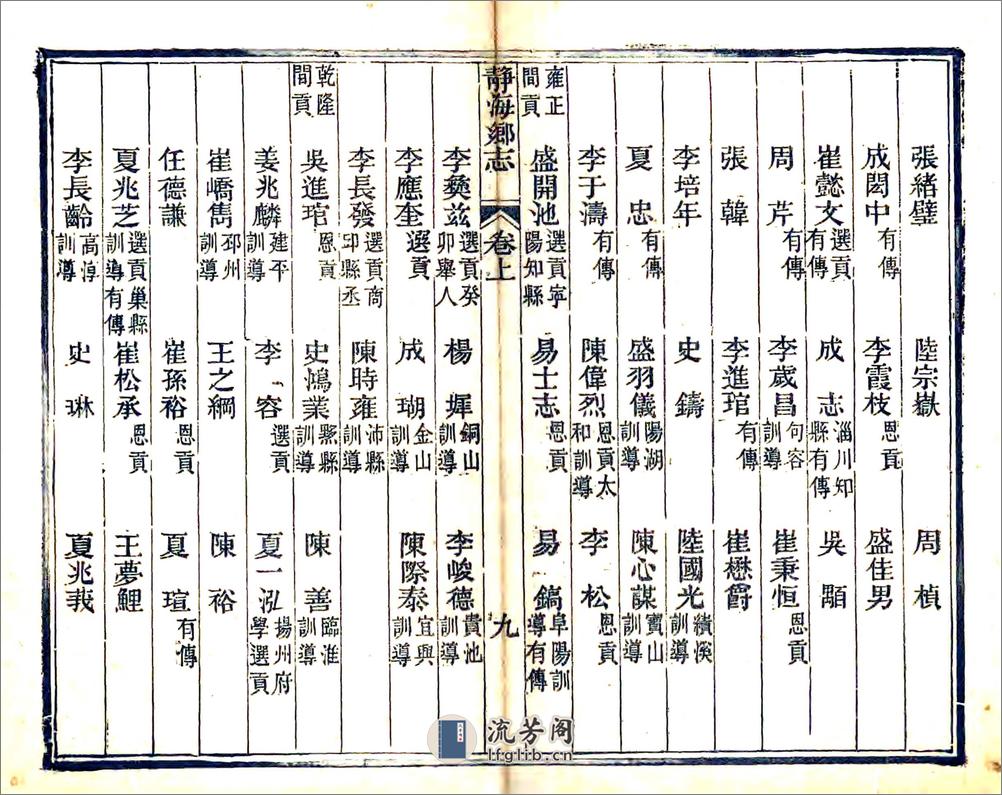 張緒璧 陸宗嶽 周楨
成閎中有傳 李霞枝恩貢 盛佳男
崔懿文選貢有傳 成志淄川知縣有傳 吳顒
周芹有傳 李歲昌句容訓導 崔秉恒恩貢
張韓 李進琯有傳 崔懋爵
李培年 史鑄 陸國光績溪訓導
夏忠有傳 盛羽儀陽湖訓導 陳心謀寶山訓導
李于濤有傳 陳偉烈恩貢太和訓導 李松恩貢
雍正間貢 盛開池選貢寧陽知縣 易士志恩貢 易鎬阜陽訓導有傳
靜海鄉志 卷上 九
李彝茲選貢癸卯舉人 楊㨹銅山訓導 李峻德貴池訓導
李應奎選貢 成瑚金山訓導 陳際泰宜興訓導
李長發選貢商邱縣丞 陳時雍沛縣訓導
乾隆間貢 吳進琯恩貢 史鴻業縣訓導 陳善臨淮訓導
姜兆麟建平訓導 李容選貢 夏一泓揚州府學選貢
崔嶠雋邳州訓導 王之綱 陳裕
任德謙 崔孫裕恩貢 夏瑄有傳
夏兆芝選貢巢縣訓導有傳 崔松承恩貢 王夢鯉
李長齡高淳訓導 史琳 夏兆莪
流芳阁
lfglib.cn